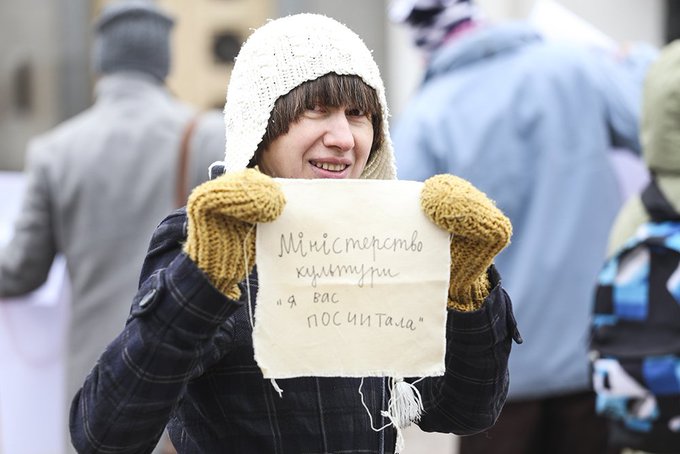 Міністерство
культури
"я вас
посчитала"